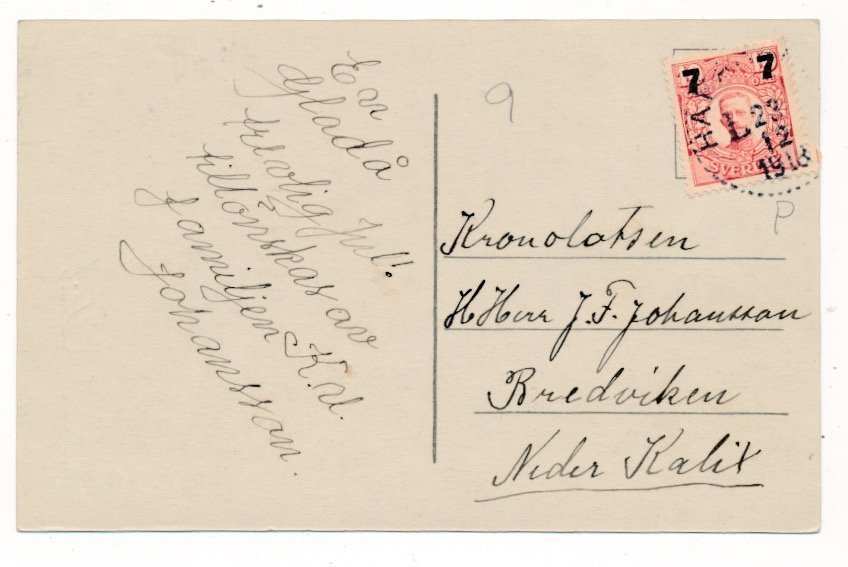 En
glad å
trevlig Jul!
tillönskas av
familjen K.A.
Johansson.
9
7 7
SVERI
HAPA
L
23
12
1918
P
Kronolotsen
H Herr J. F. Johansson
Bredviken
Neder Kalix